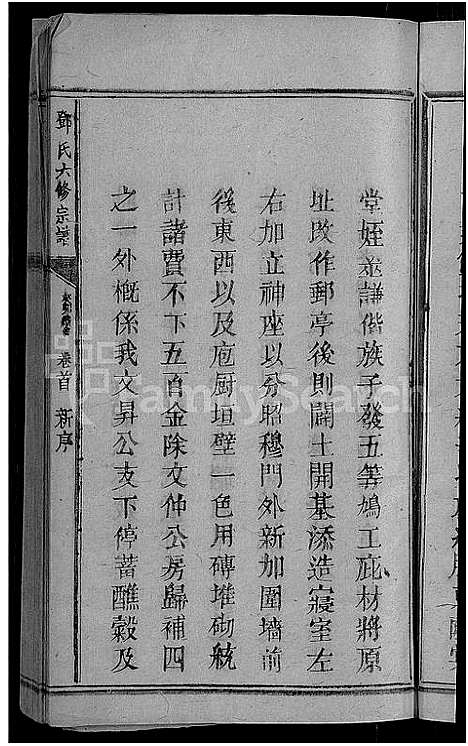 堂姪並謙偕族子發五等鳩工庇材將原
址改作郵亭後則闢土開基添造寢室左
右加立神座以分昭穆門外新加圍墻前
後東西以及庖厨垣壁一色用磚堆砌統
計諸費不下五百金除文仲公房歸補四
之一外概係我文昇公支下停蓄醮穀及
鄧氏六修宗譜
卷首 新序
FamilySearch